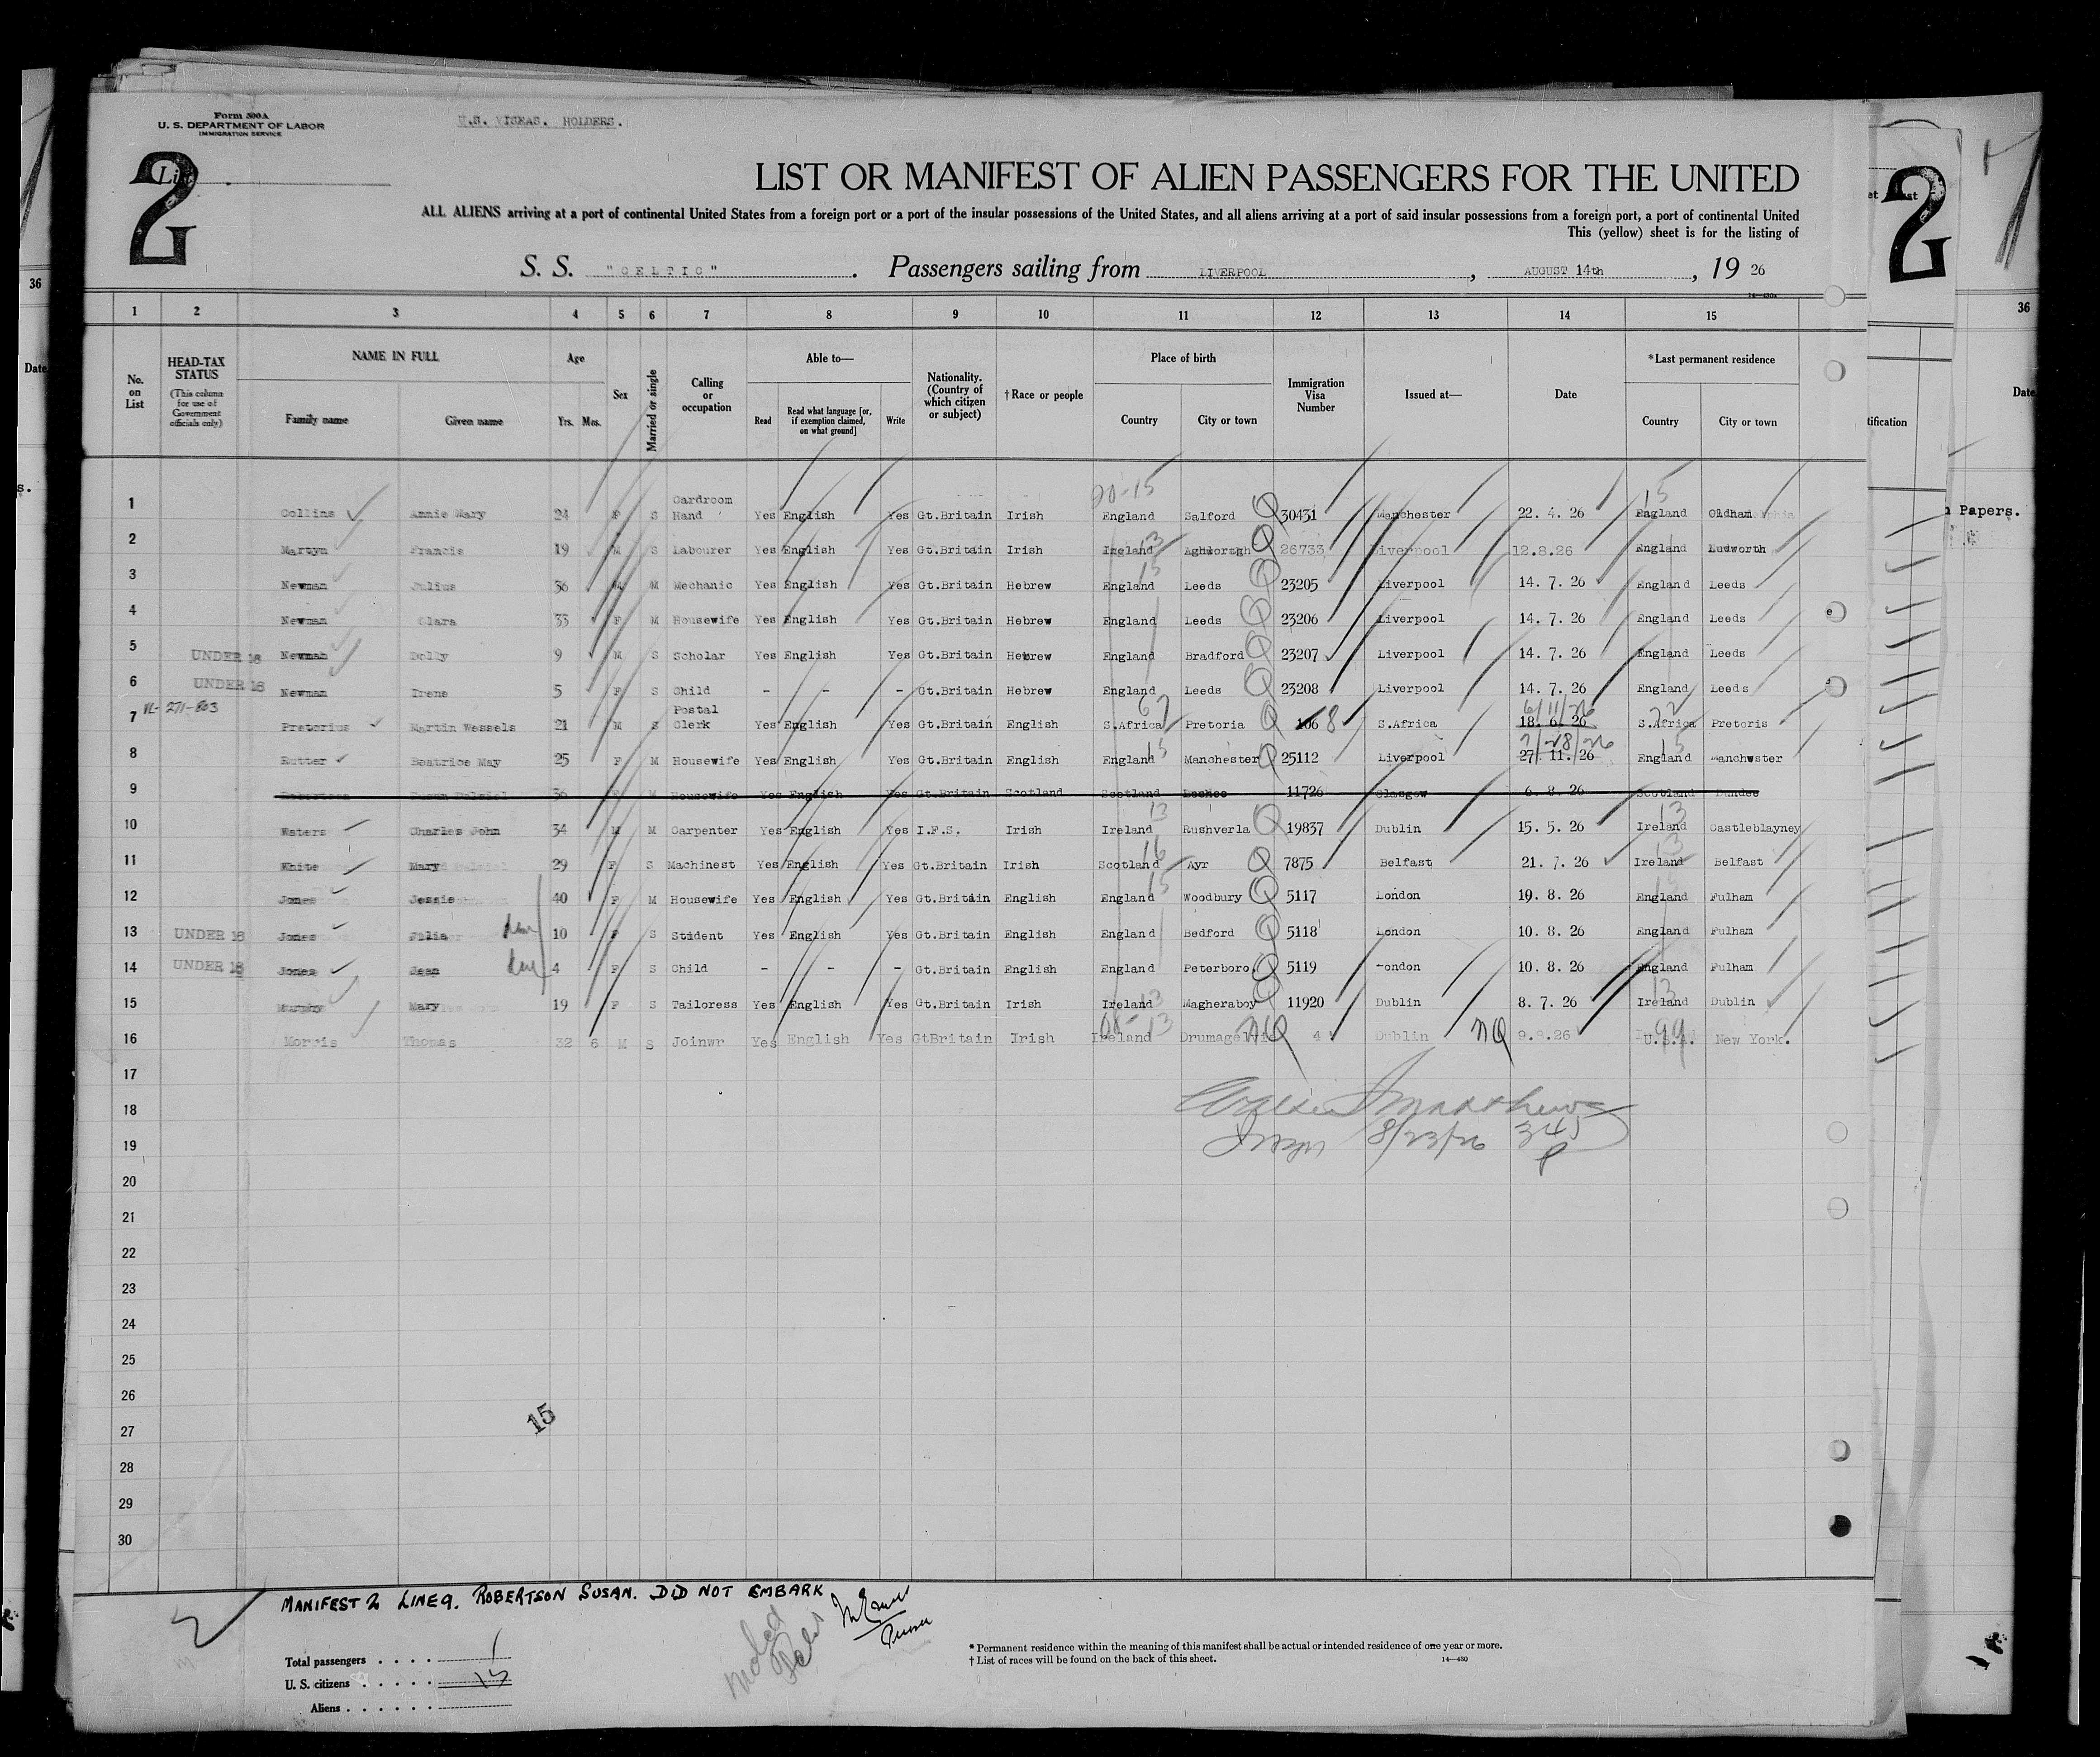 Form 500A
U. S. DEPARTMENT OF LABOR
IMMIGRATION SERVICE
U.S. VISEAS. HOLDERS.
2
List
LIST OR MANIFEST OF ALIEN PASSENGERS FOR THE UNITED
ALL ALIENS arriving at a port of continental United States from a foreign port or a port of the insular possessions of the United States, and all aliens arriving at a port of said insular possessions from a foreign port, a port of continental United
This (yellow) sheet is for the listing of
S. S. "CELTIC". Passengers sailing from LIVERPOOL, AUGUST 14th, 19 26
1 2 3 4 5 6 7 8 9 10 11 12 13 14 15
No. on List
HEAD-TAX STATUS (This column for use of Government officials only)
NAME IN FULL
Family name Given name
Age
Yrs. Mos.
Sex
Married or single
Calling or occupation
Able to—
Read
Read what language [or, if exemption claimed, on what ground]
Write
Nationality. (Country of which citizen or subject)
† Race or people
Place of birth
Country City or town
Immigration Visa Number
Issued at—
Date
*Last permanent residence
Country City or town
20-15
1 Collins Annie Mary 24 F S Cardroom Hand Yes English Yes Gt.Britain Irish England Salford Q 30431 Manchester 22. 4. 26 England Oldham
2 Martyn Francis 19 M S Labourer Yes English Yes Gt.Britain Irish Ireland Q 26733 Liverpool 12.8.26 England
3 Newman Julius 36 M M Mechanic Yes English Yes Gt.Britain Hebrew England Leeds Q 23205 Liverpool 14. 7. 26 England Leeds
4 Newman Clara 33 F M Housewife Yes English Yes Gt.Britain Hebrew England Leeds Q 23206 Liverpool 14. 7. 26 England Leeds
5 UNDER 16 Newman Dolly 9 M S Scholar Yes English Yes Gt.Britain Hebrew England Bradford Q 23207 Liverpool 14. 7. 26 England Leeds
6 UNDER 16 Newman Irene 5 F S Child - - - Gt.Britain Hebrew England Leeds Q 23208 Liverpool 14. 7. 26 England Leeds
7 Pretorius Martin Wessels 21 M S Postal Clerk Yes English Yes Gt.Britain English S.Africa Pretoria Q 1068 S.Africa 18. 6. 26 6/11/26 S.Africa Pretoris
8 Rutter Beatrice May 25 F M Housewife Yes English Yes Gt.Britain English England Manchester Q 25112 Liverpool 27. 11. 26 7/28/26 England Manchwster
9 36 Housewife Yes English Yes Gt.Britain Scotland Scotland 11726 Glasgow 6. 8. 26 Scotland Dundee
10 Waters Charles John 34 M M Carpenter Yes English Yes I.F.S. Irish Ireland Rushverla Q 19837 Dublin 15. 5. 26 Ireland Castleblayney
11 White Mary 29 F S Machinest Yes English Yes Gt.Britain Irish Scotland Ayr Q 7875 Belfast 21. 7. 26 Ireland Belfast
12 Jones Jessie 40 F M Housewife Yes English Yes Gt.Britain English England Woodbury Q 5117 London 19. 8. 26 England Fulham
13 UNDER 16 Jones Julia 10 F S Student Yes English Yes Gt.Britain English England Bedford Q 5118 London 10. 8. 26 England Fulham
14 UNDER 16 Jones Jean 4 F S Child - - - Gt.Britain English England Peterboro. Q 5119 London 10. 8. 26 England Fulham
15 Murphy Mary 19 F S Tailoress Yes English Yes Gt.Britain Irish Ireland Magheraboy Q 11920 Dublin 8. 7. 26 Ireland Dublin
16 Morris Thomas 32 6 M S Joinwr Yes English Yes GtBritain Irish Ireland NQ 4 Dublin NQ 9.8.26 U.S.A. New York.
17
18
19 8/23/26
20
21
22
23
24
25
26
27
28
29
30
15
MANIFEST 2 LINE 9. ROBERTSON SUSAN. DID NOT EMBARK
Purser
Total passengers
U. S. citizens
Aliens
* Permanent residence within the meaning of this manifest shall be actual or intended residence of one year or more.
† List of races will be found on the back of this sheet.
14—430
2
36
Date
Papers.